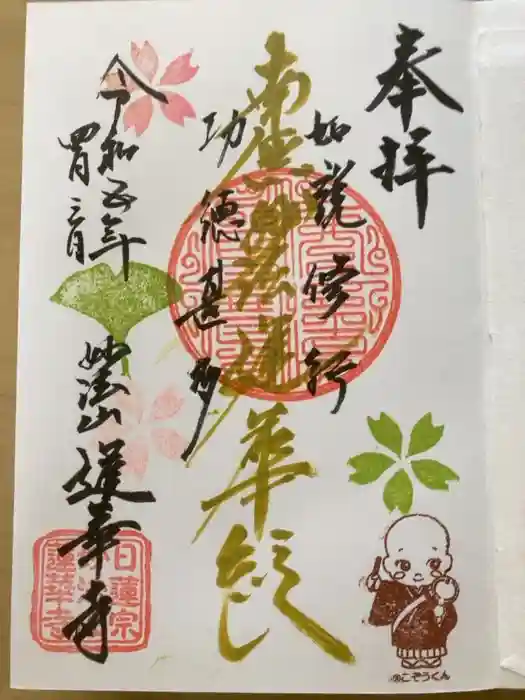 奉拝
如説修行
南無妙法蓮華経
功徳甚多
令和五年
妙法山 蓮華寺
日蓮宗
蓮華寺
©こぞうくん